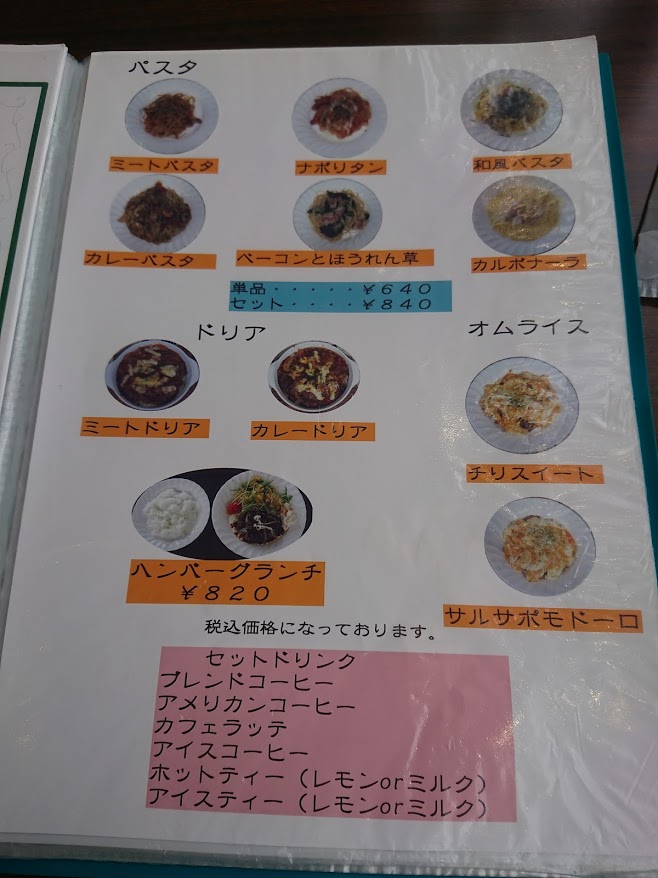 パスタ
ミートパスタ
ナポリタン
和風パスタ
カレーパスタ
ベーコンとほうれん草
カルボナーラ
単品・・・・・￥６４０
セット・・・・￥８４０
ドリア
オムライス
ミートドリア
カレードリア
チリスイート
ハンバーグランチ
￥８２０
サルサポモドーロ
税込価格になっております。
セットドリンク
ブレンドコーヒー
アメリカンコーヒー
カフェラッテ
アイスコーヒー
ホットティー（レモンorミルク）
アイスティー（レモンorミルク）